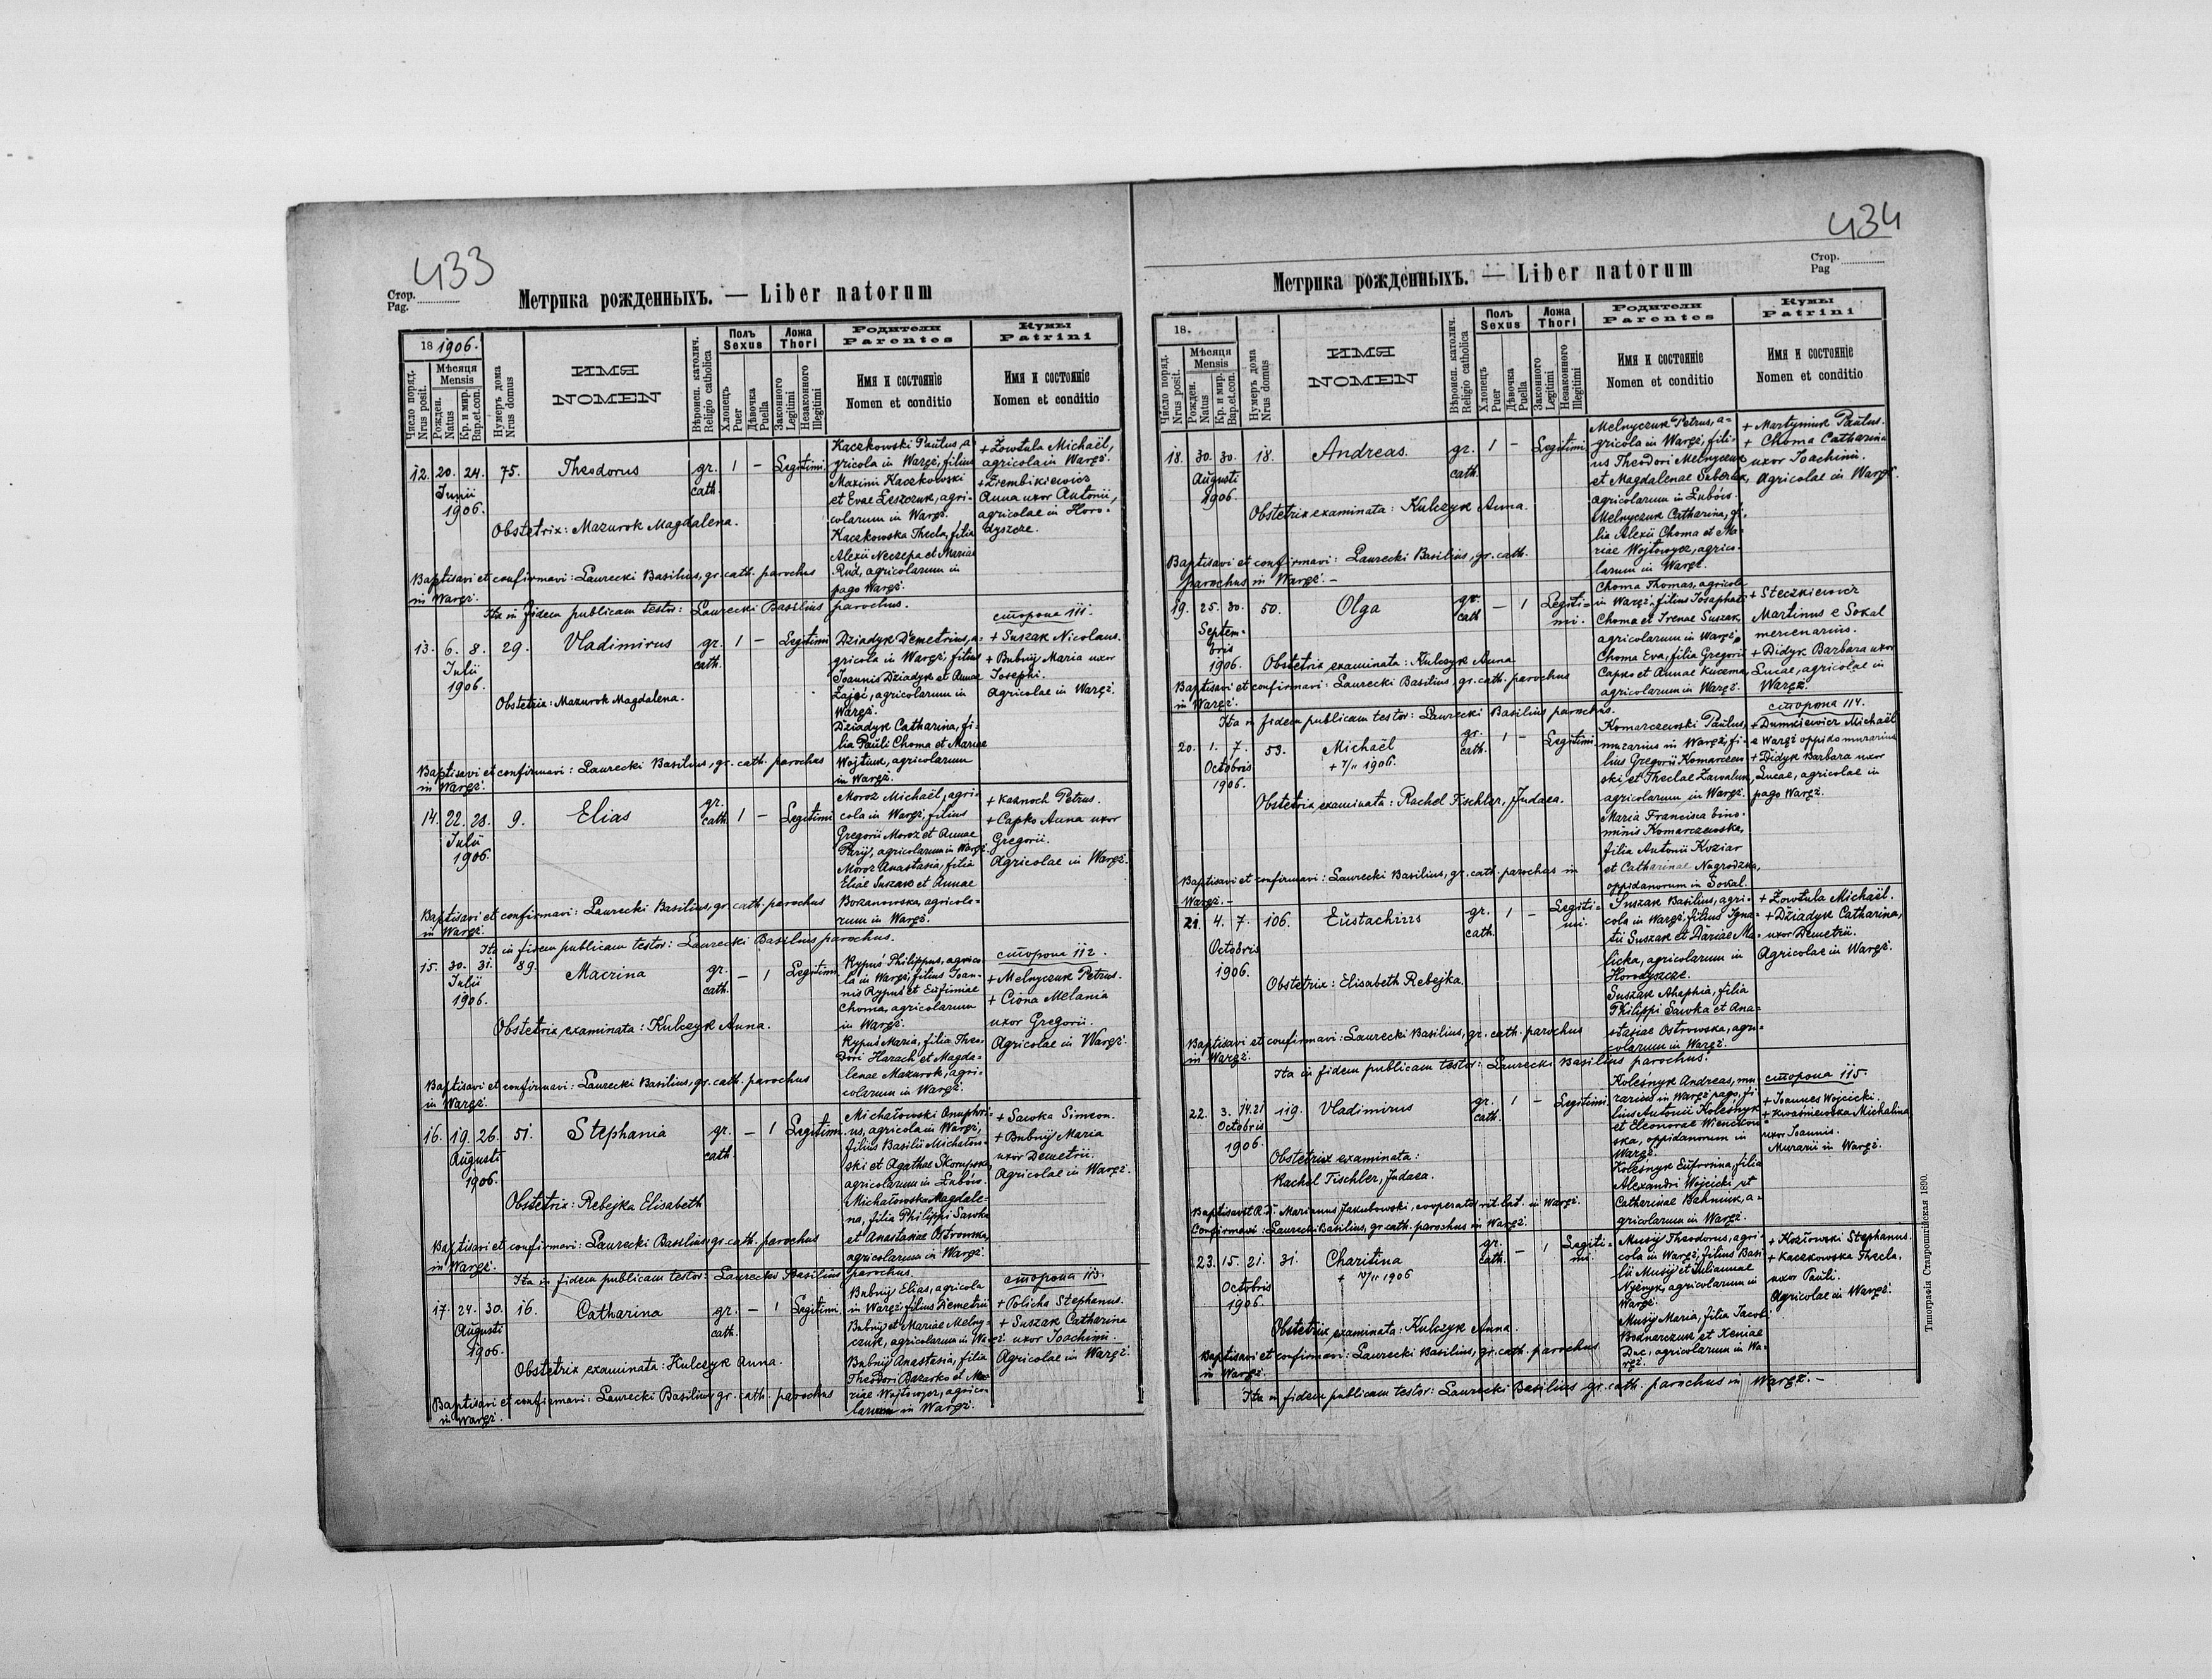 433
Стор.
Pag.
Метрика рожденныхъ. — Liber natorum
18 1906.
Число поряд.
Nrus posit.
Мѣсяця
Mensis
Рожден.
Natus
Кр. и мир.
Bap. et. con.
Нумеръ дома
Nrus domus
ИМЯ
NOMEN
Вѣроисп. католич.
Religio catholica
Полъ
Sexus
Хлопецъ
Puer
Дѣвочка
Puella
Ложа
Thori
Законного
Legitimi
Незаконного
Illegitimi
Родители
Parentes
Имя и состояніе
Nomen et conditio
Кумы
Patrini
Имя и состояніе
Nomen et conditio
12. 20. 24. 75. Theodorus gr. 1 – Legitimi.
Junii cath.
1906.
Obstetrix: Mazurok Magdalena.
Kaczkowski Paulus, a-
gricola in Waręż, filius
Maximi Kaczkowski
et Evae Leszczuk, agri-
colarum in Waręż.
Kaczkowska Thecla, filia
Alexii Neczepa et Mariae
Rud, agricolarum in
pago Waręż.
+ Zowtula Michaël,
agricola in Waręż.
+ Ziembikiewicz
Anna uxor Antonii,
agricolae in Horo-
dyszcze.
Baptisavi et confirmavi: Laurecki Basilius, gr. cath. parochus
in Waręż.
Ita in fidem publicam testor: Laurecki Basilius parochus.
сторона 111.
13. 6. 8. 29. Vladimirus gr. 1 – Legitimi
Julii cath.
1906.
Obstetrix: Mazurok Magdalena.
Dziadyk Demetrius, a-
gricola in Waręż, filius
Joannis Dziadyk et Annae
Zajęć, agricolarum in
Waręż.
Dziadyk Catharina, fi-
lia Pauli Choma et Mariae
Wojtiuk, agricolarum
in Waręż.
+ Suszak Nicolaus.
+ Bubnij Maria uxor
Josephi.
Agricolae in Waręż.
Baptisavi et confirmavi: Laurecki Basilius, gr. cath. parochus
in Waręż.
14. 22. 28. 9. Elias gr. 1 – Legitimi
Julii cath.
1906.
Moroz Michaël, agri-
cola in Waręż, filius
Gregorii Moroz et Annae
Paryj, agricolarum in Waręż.
Moroz Anastasia, filia
Eliae Suszak et Annae
Borzanowska, agricola-
rum in Waręż.
+ Kaznoch Petrus.
+ Capko Anna uxor
Gregorii.
Agricolae in Waręż.
Baptisavi et confirmavi: Laurecki Basilius, gr. cath. parochus
in Waręż.
Ita in fidem publicam testor: Laurecki Basilius parochus.
сторона 112.
15. 30. 31. 89. Macrina gr. – 1 Legitimi.
Julii cath.
1906.
Obstetrix examinata: Kulczyk Anna.
Rypuś Philippus, agrico-
la in Waręż, filius Joan-
nis Rypuś et Eufimiae
Choma, agricolarum
in Waręż.
Rypuś Maria, filia Theo-
dori Harach et Magda-
lenae Mazurok, agri-
colarum in Waręż.
+ Melnyczuk Petrus.
+ Ciona Melania
uxor Gregorii.
Agricolae in Waręż.
Baptisavi et confirmavi: Laurecki Basilius, gr. cath. parochus
in Waręż.
16. 19. 26. 51. Stephania gr. – 1 Legitimi.
Augusti cath
1906.
Obstetrix: Rebejka Elisabeth
Michałowski Onuphri-
us, agricola in Waręż,
filius Basilii Michałow-
ski et Agathae Skorupska,
agricolarum in Łubów.
Michałowska Magdale-
na, filia Philippi Sawka
et Anastasiae Ostrowska,
agricolarum in Waręż.
+ Sawka Simeon.
+ Bubnij Maria
uxor Demetrii.
Agricolae in Waręż.
Baptisavi et confirmavi: Laurecki Basilius, gr. cath. parochus
in Waręż.
Ita in fidem publicam testor: Laurecki Basilius parochus.
сторона 113.
17. 24. 30. 16. Catharina gr. – 1 Legitimi.
Augusti cath.
1906.
Obstetrix examinata: Kulczyk Anna.
Bubnij Elias, agricola
in Waręż, filius Demetrii
Bubnij et Mariae Melny-
czuk, agricolarum in Waręż.
Bubnij Anastasia, filia
Theodori Bazarko et Ma-
riae Wojtowycz, agrico-
larum in Waręż.
+ Policha Stephanus.
+ Suszak Catharina
uxor Joachimi.
Agricolae in Waręż.
Baptisavi et confirmavi: Laurecki Basilius, gr. cath. parochus
in Waręż.
434
Стор.
Pag
Метрика рожденныхъ. — Liber natorum
18.
Число поряд.
Nrus posit.
Мѣсяця
Mensis
Рожден.
Natus
Кр. и мир.
Bap. et. con.
Нумеръ дома
Nrus domus
ИМЯ
NOMEN
Вѣроисп. католич.
Religio catholica
Полъ
Sexus
Хлопецъ
Puer
Дѣвочка
Puella
Ложа
Thori
Законного
Legitimi
Незаконного
Illegitimi
Родители
Parentes
Имя и состояніе
Nomen et conditio
Кумы
Patrini
Имя и состояніе
Nomen et conditio
18. 30. 30. 18. Andreas gr. 1 – Legitimi
Augusti cath.
1906.
Obstetrix examinata: Kulczyk Anna.
Melnyczuk Petrus, a-
gricola in Waręż, fili-
us Theodori Melnyczuk
et Magdalenae
agricolarum in Łubów.
Melnyczuk Catharina, fi-
lia Alexii Choma et Ma-
riae Wojtowycz, agrico-
larum in Waręż.
+ Martyniuk Paulus.
+ Choma Catharina
uxor Joachimi.
Agricolae in Waręż.
Baptisavi et confirmavi: Laurecki Basilius, gr. cath.
parochus in Waręż. –
19. 25. 30. 50. Olga gr. – 1 Legiti-
Septem- cath mi.
bris
1906.
Obstetrix examinata: Kulczyk Anna
Choma Thomas, agricola
in Waręż, filius Josaphat
Choma et Irenae Suszak,
agricolarum in Waręż,
Choma Eva, filia Gregorii
Capko et Annae Kuczma,
agricolarum in Waręż.
+ Steczkiewicz
Martinus e Sokal
mercenarius.
+ Didyk Barbara uxor
Lucae, agricolae in
Waręż.
Baptisavi et confirmavi: Laurecki Basilius, gr. cath. parochus
in Waręż.
Ita in fidem publicam testor: Laurecki Basilius parochus.
сторона 114.
20. 1. 7. 53. Michaël gr. 1 – Legitimi
Octobris + 7/11 1906. cath.
1906.
Obstetrix examinata: Rachel Fischler, Judaea.
Komarczewski Paulus,
murarius in Waręż, fi-
lius Gregorii Komarczew-
ski et Theclae Zawalun,
agricolarum in Waręż.
Maria Francisca bino-
minis Komarczewska,
filia Antonii Koziar
et Catharinae Nagrodzka,
oppidanorum in Sokal.
+ Dumkiewicz Michaël
e Waręż oppido murarius
+ Didyk Barbara uxor
Lucae, agricolae in
pago Waręż.
Baptisavi et confirmavi: Laurecki Basilius, gr. cath. parochus in
Waręż. –
21. 4. 7. 106. Eustachius gr. 1 – Legiti-
Octobris cath. mi.
1906.
Obstetrix: Elisabeth Rebejka.
Suszak Basilius, agri-
cola in Waręż, filius Igna-
tii Suszak et Dariae Ma-
licka, agricolarum in
Horodyszcze.
Suszak Ahaphia, filia
Philippi Sawka et Ana-
stasiae Ostrowska, agri-
colarum in Waręż.
+ Zowtula Michaël.
+ Dziadyk Catharina,
uxor Demetrii.
Agricolae in Waręż.
Baptisavi et confirmavi: Laurecki Basilius, gr. cath. parochus
in Waręż.
Ita in fidem publicam testor: Laurecki Basilius parochus.
сторона 115.
22. 3. 14.21 119. Vladimirus gr. 1 – Legitimi.
Octobris cath.
1906.
Obstetrix examinata:
Rachel Fischler, Judaea.
Koleśnyk Andreas, mu-
rarius in Waręż pago, fi-
lius Antonii Koleśnyk
et Eleonorae Wienckow-
ska, oppidanorum in
Waręż.
Koleśnyk Eufrosina, filia
Alexandri Wojcicki et
Catherinae Bahniuk, a-
gricolarum in Waręż.
+ Joannes Wojcicki.
+ Kwaśniewska Michalina
uxor Joannis.
Murarii in Waręż.
Baptisavit R. D. Marianus Jakubowski, cooperator rit. lat. in Waręż.
Confirmavi: Laurecki Basilius, gr. cath. parochus in Waręż.
23. 15. 21. 31. Charitina gr. – 1 Legiti-
Octobris cath. mi.
1906.
Obstetrix examinata: Kulczyk Anna.
Musij Theodorus, agri-
cola in Waręż, filius Basi-
lii Musij et Juliannae
Nyżnyk, agricolarum in
Waręż.
Musij Maria, filia Jacobi
Bodnarczuk et Xeniae
Duc, agricolarum in Wa-
ręż.
+ Kozłowski Stephanus.
+ Kaczkowska Thecla,
uxor Pauli.
Agricolae in Waręż.
Baptisavi et confirmavi: Laurecki Basilius, gr. cath. parochus
in Waręż.
Ita in fidem publicam testor: Laurecki Basilius gr. cath. parochus in Waręż. –
Типографія Ставропигійская 1890.